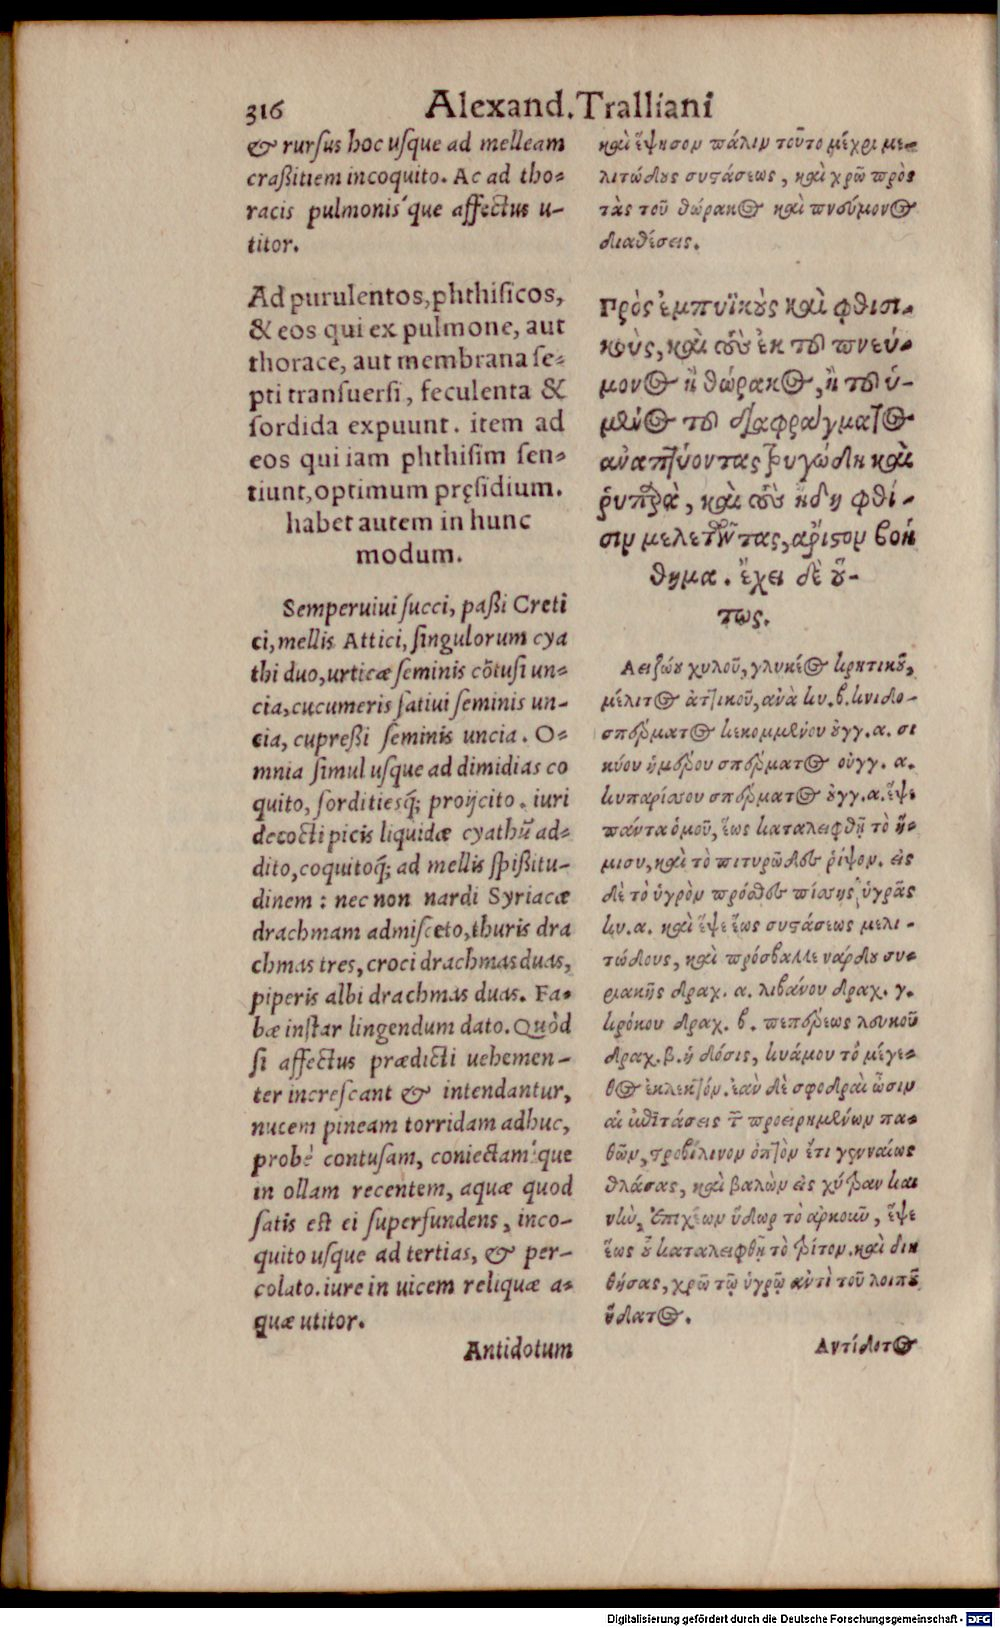 316 Alexand. Tralliani
& rursus hoc usque ad melleam
craßitiem incoquito. Ac ad tho-
racis pulmonis´que affectus u-
titor.
Ad purulentos, phthisicos,
& eos qui ex pulmone, aut
thorace, aut membrana se-
pti transuersi, feculenta &
sordida expuunt. item ad
eos qui iam phthisim sen-
tiunt, optimum pręsidium.
habet autem in hunc
modum.
Semperuiui succi, paßi Creti
ci, mellis Attici, singulorum cya
thi duo, urticæ seminis cõtusi un-
cia, cucumeris satiui seminis un-
cia, cupreßi seminis uncia. O-
mnia simul usque ad dimidias co
quito, sorditiesq́; proijcito. iuri
decocti picis liquidæ cyathũ ad-
dito, coquitoq́; ad mellis spißitu-
dinem: nec non nardi Syriacæ
drachmam admisceto, thuris dra
chmas tres, croci drachmas duas,
piperis albi drachmas duas. Fa-
bæ instar lingendum dato. Quòd
si affectus prædicti uehemen-
ter increscant & intendantur,
nucem pineam torridam adhuc,
probè contusam, coniectam´que
in ollam recentem, aquæ quod
satis est ei superfundens, inco-
quito usque ad tertias, & per-
colato. iure in uicem reliquæ a-
quæ utitor.
Antidotum
καὶ ἕψησον πάλιν τοῦτο μέχρι με-
λιτώδους συστάσεως, καὶ χρῶ πρὸς
τὰς τοῦ θώρακος καὶ πνεύμονος
διαθέσεις.
Πρὸς ἐμπυϊκοὺς καὶ φθισι-
κοὺς, καὶ τοὺς ἐκ τοῦ πνεύ-
μονος ἢ θώρακος, ἢ τοῦ ὑ-
μένος τοῦ διαφράγματος
ἀναπτύοντας τρυγώδη καὶ
ῥυπαρὰ, καὶ τοὺς ἤδη φθί-
σιν μελετῶντας, ἄριστον βοή
θημα. ἔχει δὲ οὕ-
τως.
Αειζώου χυλοῦ, γλυκέος κρητικοῦ,
μέλιτος ἀττικοῦ, ἀνὰ κυ. β. κνιδο-
σπέρματος κεκομμένου οὐγγ. α. σι
κύου ἡμέρου σπέρματος οὐγγ. α.
κυπαρίσσου σπέρματος οὐγγ. α. ἕψε
πάντα ὁμοῦ, ἕως καταλειφθῇ τὸ ἥ-
μισυ, καὶ τὸ πιτυρῶδες ῥίψον. εἰς
δὲ τὸ ὑγρὸν πρόσθες πίσσης ὑγρᾶς
κυ. α. καὶ ἕψε ἕως συστάσεως μελι-
τώδους, καὶ πρόσβαλλε νάρδου συ-
ριακῆς δραχ. α. λιβάνου δραχ. γ.
κρόκου δραχ. β. πεπέρεως λευκοῦ
δραχ. β. ἡ δόσις, κυάμου τὸ μέγε-
θος ἐκλεικτόν. ἐὰν δὲ σφοδραὶ ὦσιν
αἱ ἐπιτάσεις τῶν προειρημένων πα-
θῶν, στροβίλινον ὀπτὸν ἔτι γενναίως
θλάσας, καὶ βαλὼν εἰς χύτραν και
νὴν, ἐπιχέων ὕδωρ τὸ ἀρκοῦν, ἕψε
ἕως οὗ καταλειφθῇ τὸ τρίτον. καὶ διη
θήσας, χρῶ τῷ ὑγρῷ ἀντὶ τοῦ λοιποῦ
ὕδατος.
Αντίδοτος
Digitalisierung gefördert durch die Deutsche Forschungsgemeinschaft - DFG